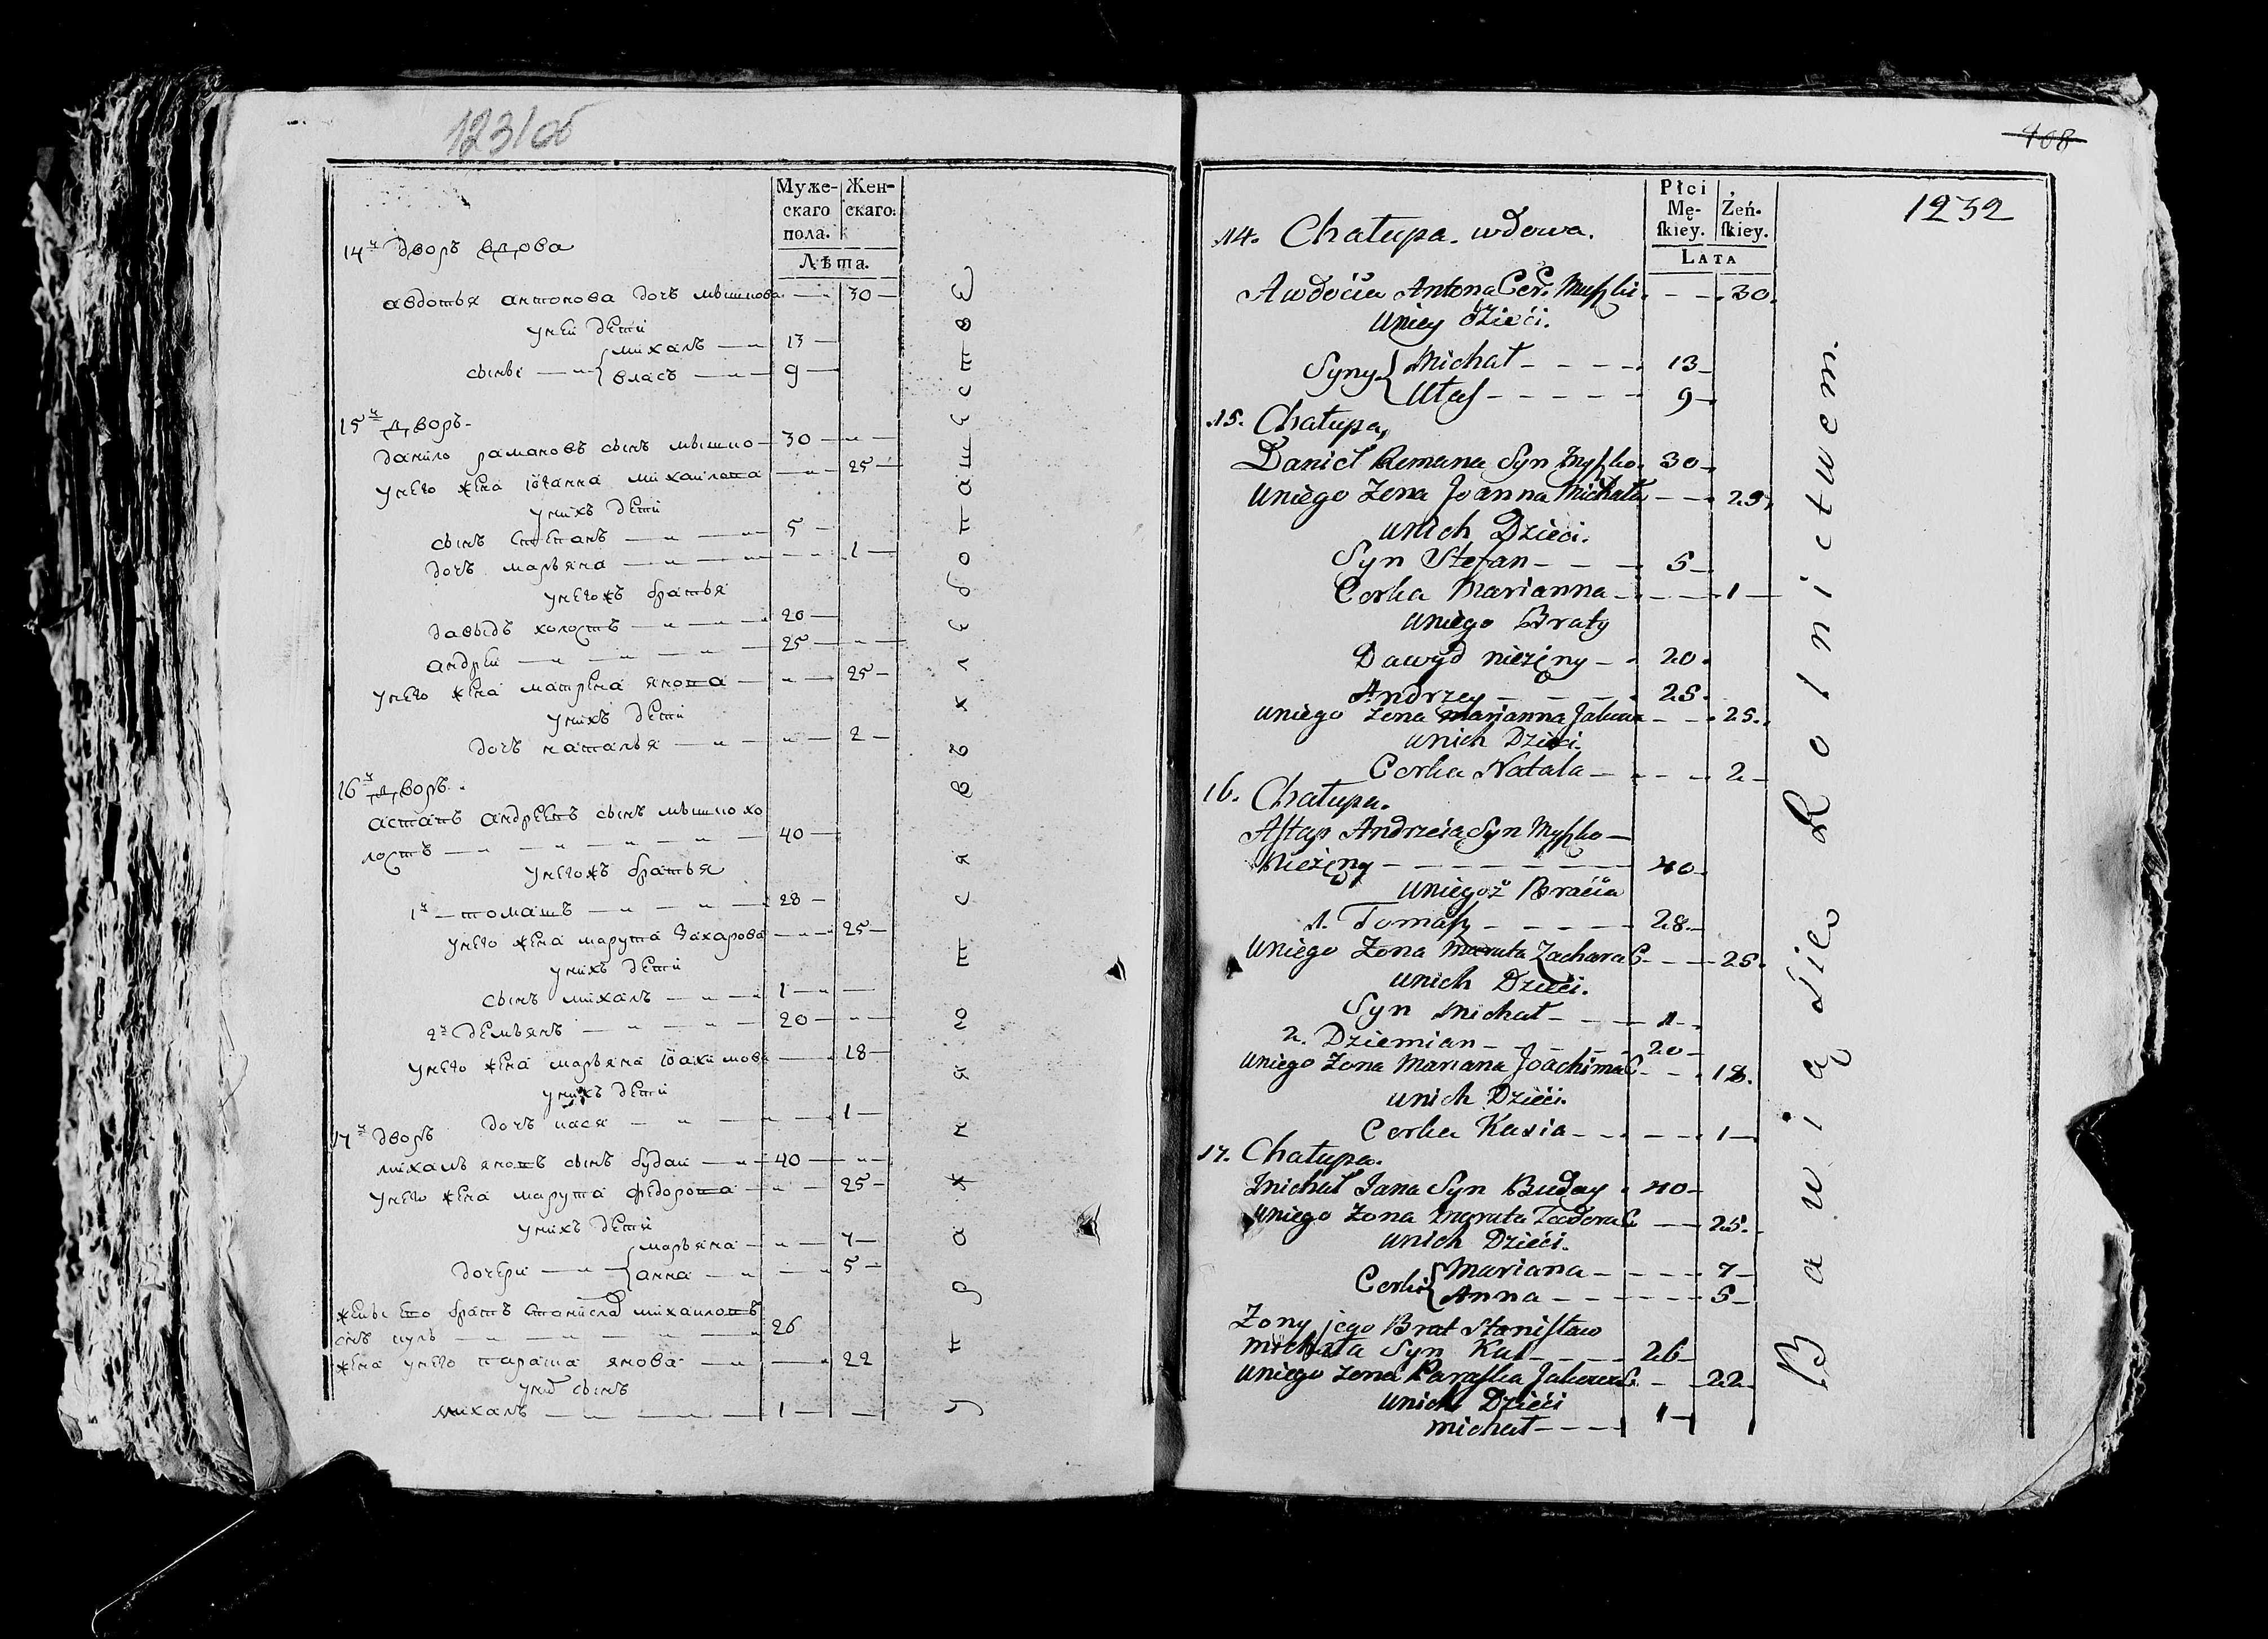 123/об
Муже-
скаго
пола.
Жен-
скаго.
Лѣта.
14й дворъ вдова
авдотья антонова дочъ мышкова — 30
унеи дети
михалъ — 13
сыны
власъ — 9
15й дворъ
данило романовъ сынъ мышко 30
унего жена иоганна михаилова 25
унихъ дети
сынъ степанъ 5
дочъ марьяна 1
унегожъ братья
давыдъ холостъ 20
андреи 25
унего жена матрена янова 25
унихъ дети
дочъ наталья 2
16й дворъ
астапъ андреевъ сынъ мышко хо
лостъ 40
унегожъ братья
1й томашъ 28
унего жена марута захарова 25
унихъ дети
сынъ михалъ 1
2й демьянъ 20
унего жена марьяна иоахимова 18
унихъ дети
дочъ кася 1
17й дворъ
михалъ яновъ сынъ будаи 40
унего жена марута федорова 25
унихъ дети
марьяна 7
дочери
анна 5
жены его братъ станиславъ михаиловъ
снъ куль 26
жена унего параша янова 22
сынъ
михалъ 1
упражняются въ хлебопашестве
108
1232
Płci
Mę-
ſkiey.
Żeń-
ſkiey.
LATA
14. Chałupa. wdowa.
Awdocia Antona Cór. Myſzki 30.
Uniey dzieci.
Syny
Michał 13
Ułas 9
15. Chałupa,
Daniel Romana Syn Myſzko 30
Uniego Żona Joanna Michała 25
unich Dzieci.
Syn Stefan 5
Corka Marianna 1
Uniego Braty
Dawyd nieżęny 20
Andrzey 25
Uniego Żona Marjanna Jakowa 25.
unich Dzieci.
Corka Natala 2
16. Chałupa.
Aſtap Andrzeia Syn Myſzko
Nieżęny 40
Uniegoż Bracia
1. Tomaſz 28
Uniego Żona Maruta Zachara C. 25.
unich Dzieci.
Syn Michał 1
2. Dziemian 20
Uniego Żona Mariana Joachima C. 18.
unich Dzieci.
Corka Kasia 1
17. Chałupa.
Michał Jana Syn Buday 40
Uniego Żona Maruta Teodora C. 25.
unich Dzieci.
Corki
Mariana 7
Anna 5
Żony jego Brat Staniſław
Michała Syn Kul 26
Uniego Żona Paraſka 22
unich Dzieci
Michał 1
Bawią się Rolnictwem.